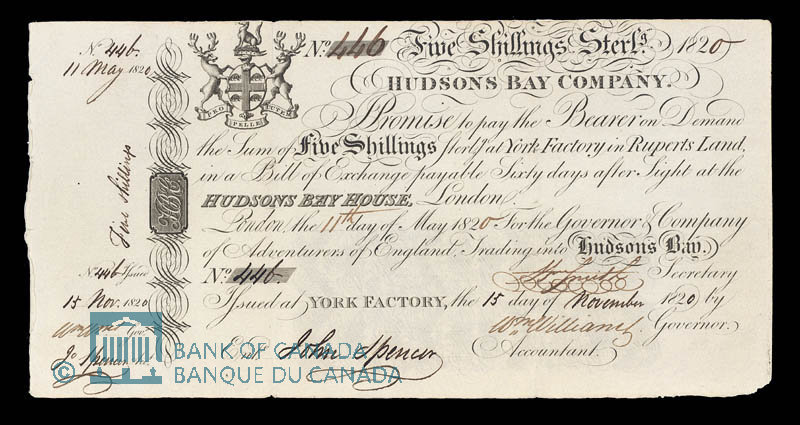 No. 446
11 May 1820
Five Shillings
HBC
No. 446 Issued
15 Nov. 1820
Gov.
Jo Spencer
PRO PELLE CUTEM
No. 446 Five Shillings Sterlg. 1820
HUDSONS BAY COMPANY.
I Promise to pay the Bearer on Demand
the Sum of Five Shillings Sterlg. at York Factory in Ruperts Land,
in a Bill of Exchange payable Sixty days after Sight at the
HUDSONS BAY HOUSE, London.
London, the 11th day of May 1820 For the Governor & Company
of Adventurers of England, Trading into Hudsons Bay.
No. 446 Smith Secretary
Issued at YORK FACTORY, the 15 day of November 1820 by
Wm Williams Governor.
Entd. John Spencer Accountant.
BANK OF CANADA
BANQUE DU CANADA